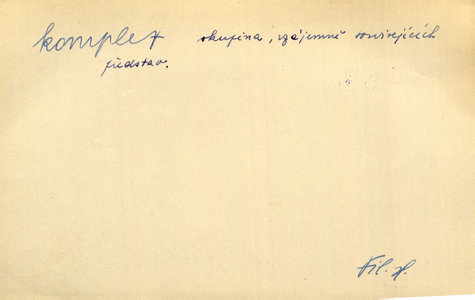 komplex skupina, vzájemně souvisejících
představ.
Fil. sl.